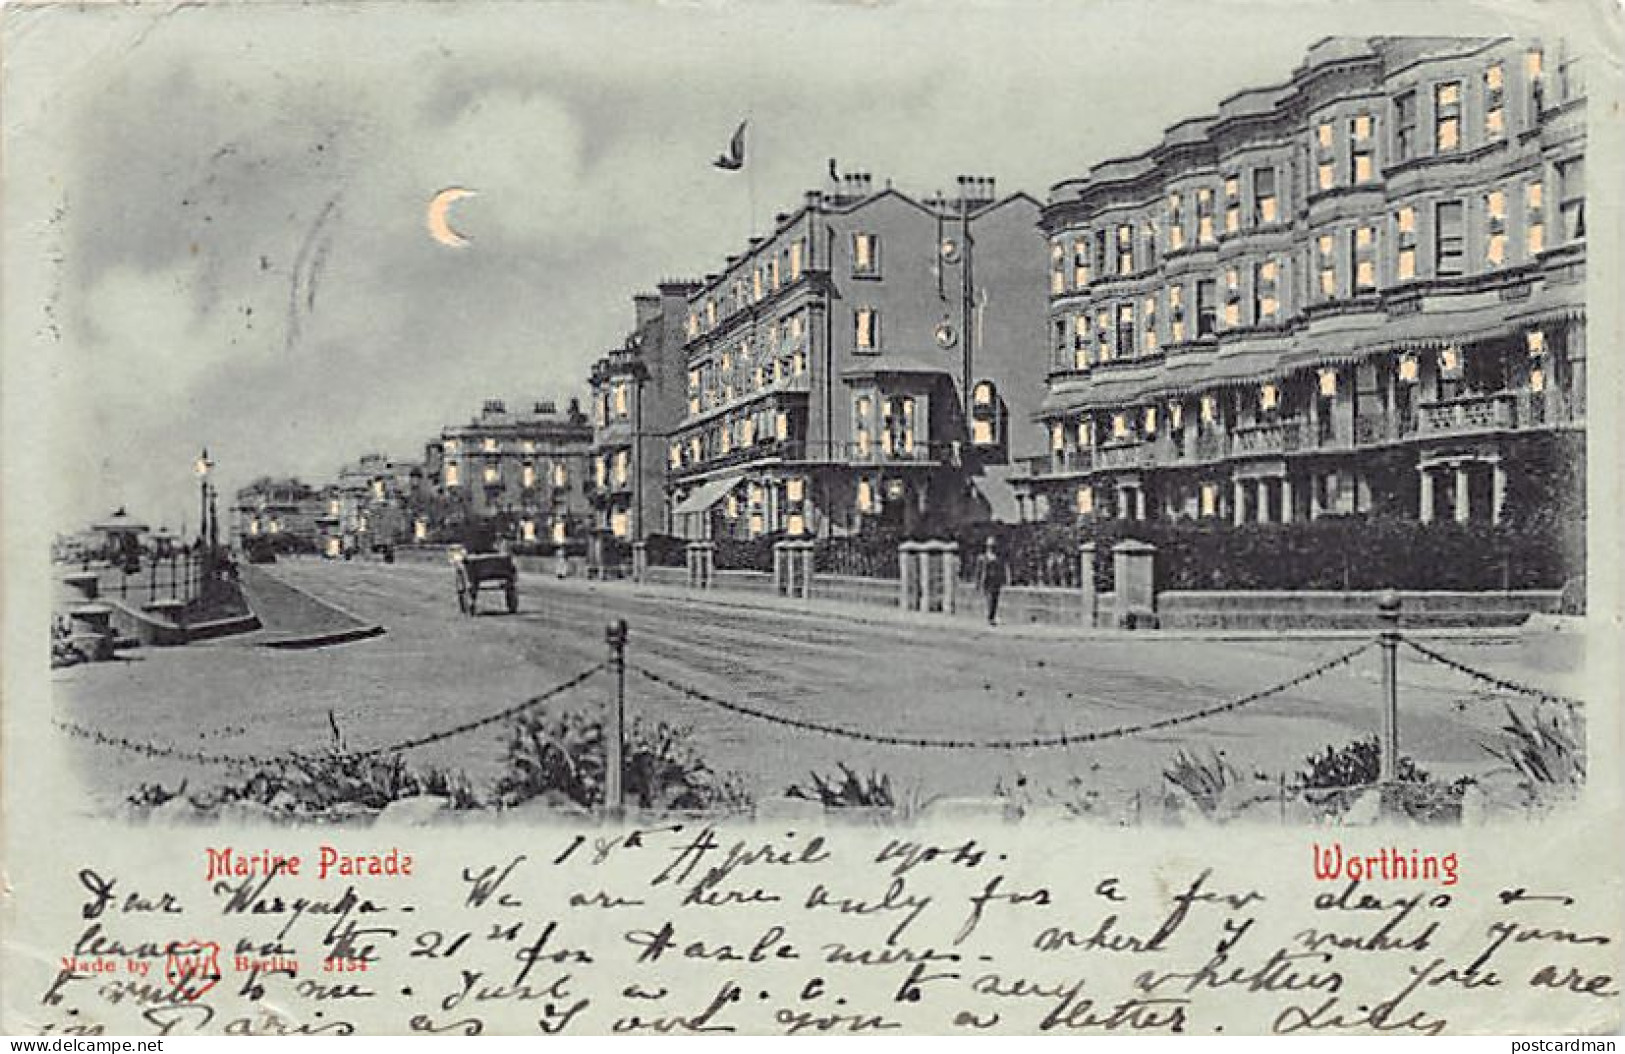 Marine Parade
18th April 1904.
Worthing
Dear - We are here only for a few days &
leave on the 21st for Haslemere - where I want you
Made by W Berlin 3134
to write to me. Just a p.c. to say whether you are
in Paris as I owe you a letter.
postcardman